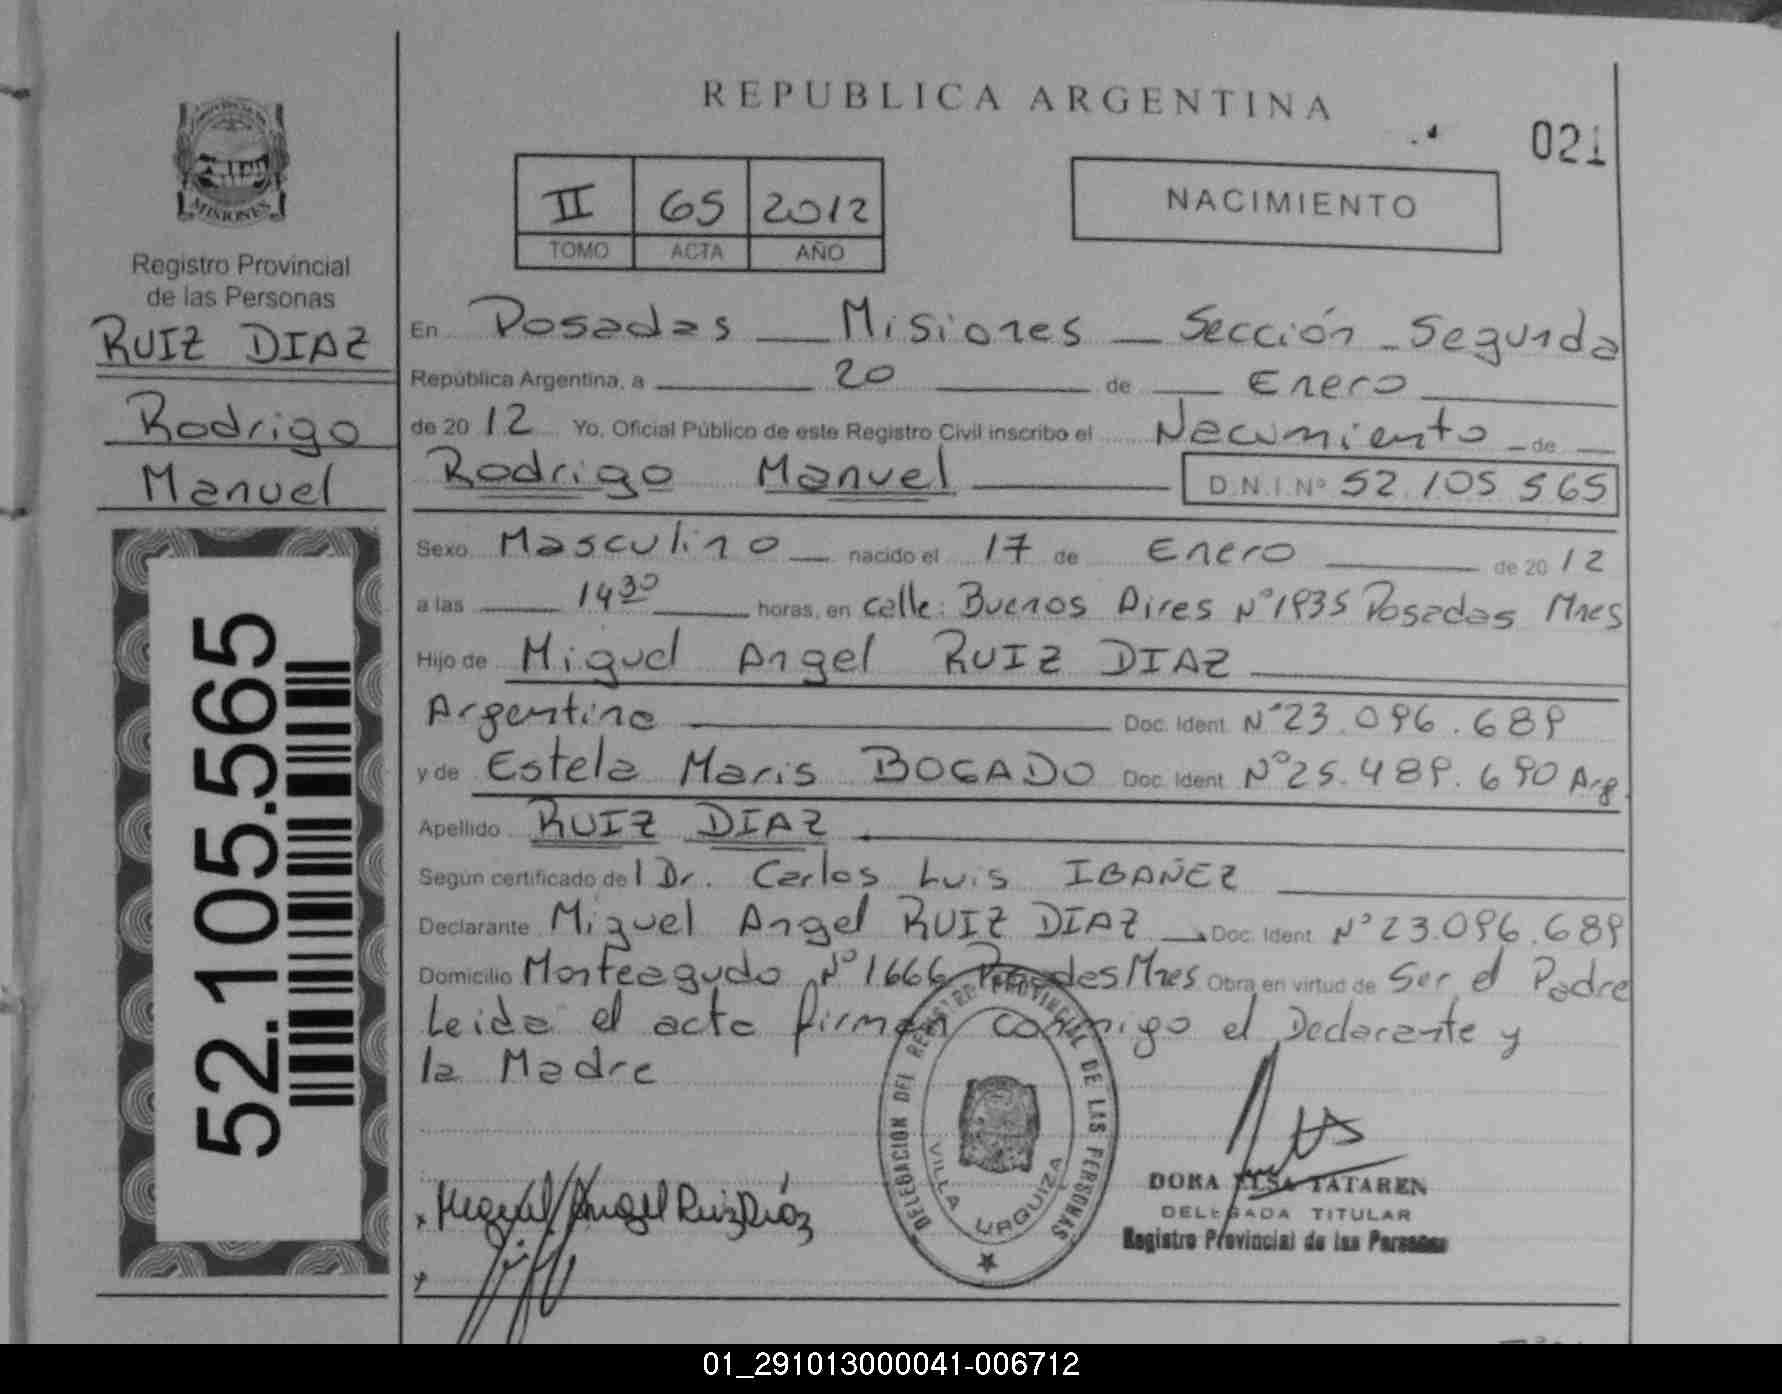 REPUBLICA ARGENTINA
021
II 65 2012
TOMO ACTA AÑO
NACIMIENTO
MISIONES
Registro Provincial
de las Personas
RUIZ DIAZ
Rodrigo
Manuel
52.105.565
En Posadas Misiones Sección Segunda
República Argentina, a 20 de Enero
de 2012 Yo, Oficial Público de este Registro Civil inscribo el Nacimiento de
Rodrigo Manuel D.N.I. Nº 52.105.565
Sexo Masculino nacido el 17 de Enero de 2012
a las 14 30 horas, en calle: Buenos Aires Nº 1935 Posadas Mnes
Hijo de Miguel Angel RUIZ DIAZ
Argentino Doc. Ident. Nº 23.096.689
y de Estela Maris BOGADO Doc. Ident. Nº 25.489.690 Arg.
Apellido RUIZ DIAZ
Según certificado del Dr. Carlos Luis IBAÑEZ
Declarante Miguel Angel RUIZ DIAZ Doc. Ident. Nº 23.096.689
Domicilio Monteagudo Nº 1666 Posadas Mnes Obra en virtud de Ser el Padre
Leida el acta firman conmigo el Declarante y
la Madre
DELEGACION DEL REGISTRO PROVINCIAL DE LAS PERSONAS
VILLA URQUIZA
Miguel Angel Ruiz Diáz
DORA ELSA TATAREN
DELEGADA TITULAR
Registro Provincial de las Personas
01_291013000041-006712